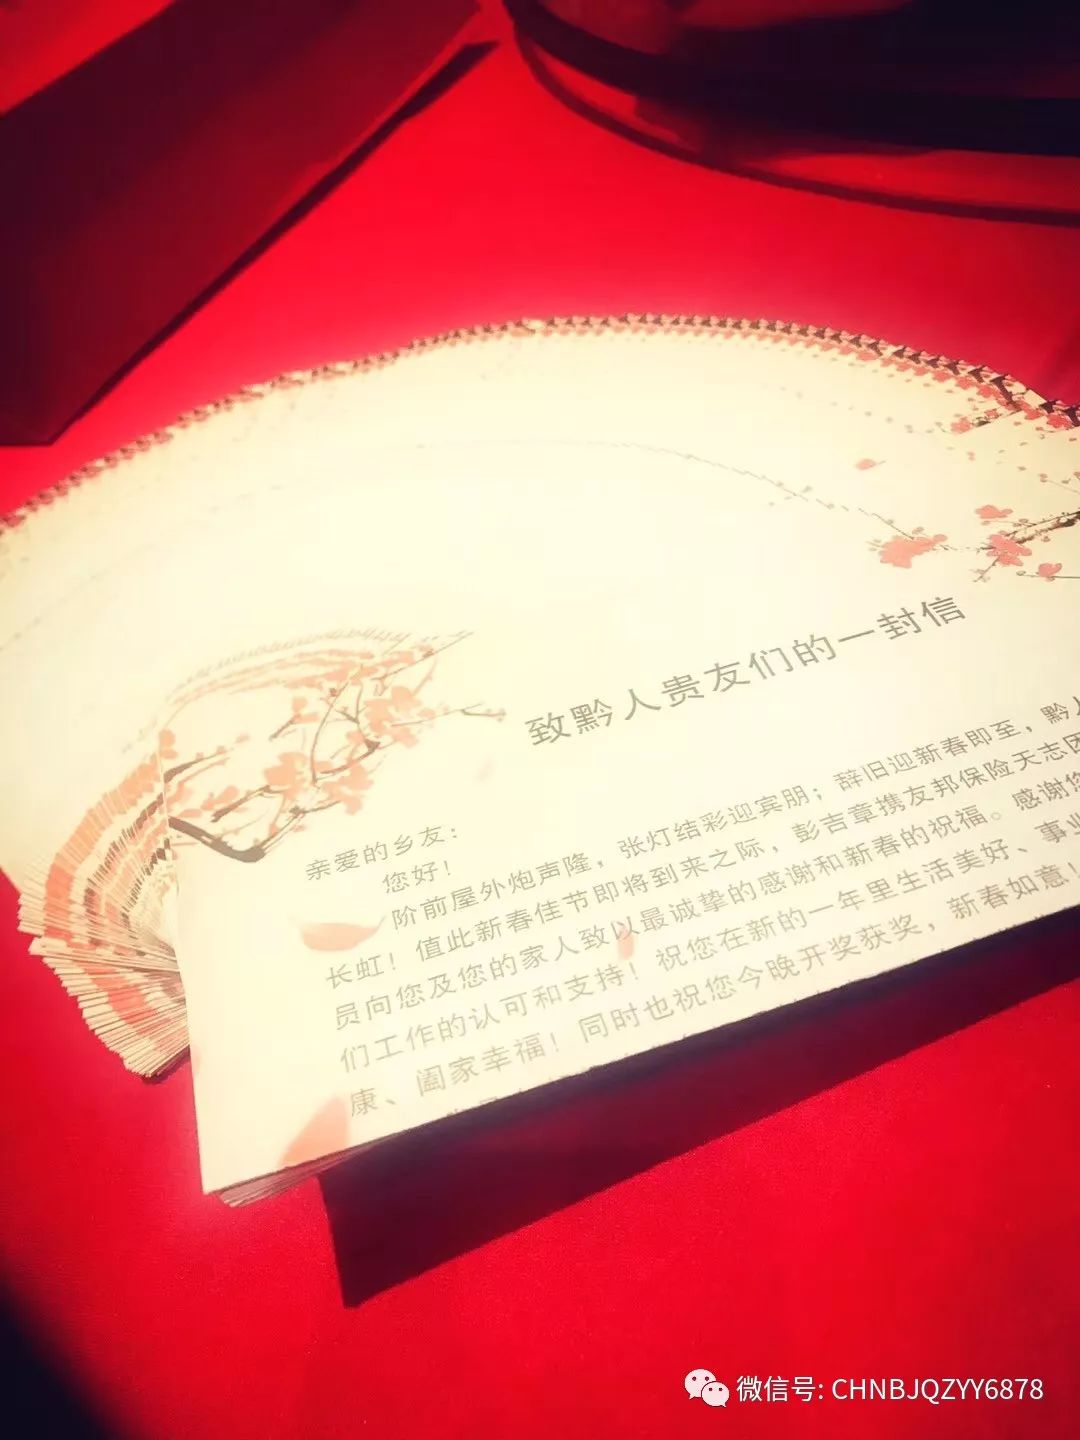 致黔人贵友们的一封信
亲爱的乡友：
您好！
阶前屋外炮声隆，张灯结彩迎宾朋；辞旧迎新春即至，黔人
长虹！值此新春佳节即将到来之际，彭吉章携友邦保险天志团
员向您及您的家人致以最诚挚的感谢和新春的祝福。感谢您
们工作的认可和支持！祝您在新的一年里生活美好、事业
康、阖家幸福！同时也祝您今晚开奖获奖，新春如意！
微信号: CHNBJQZYY6878